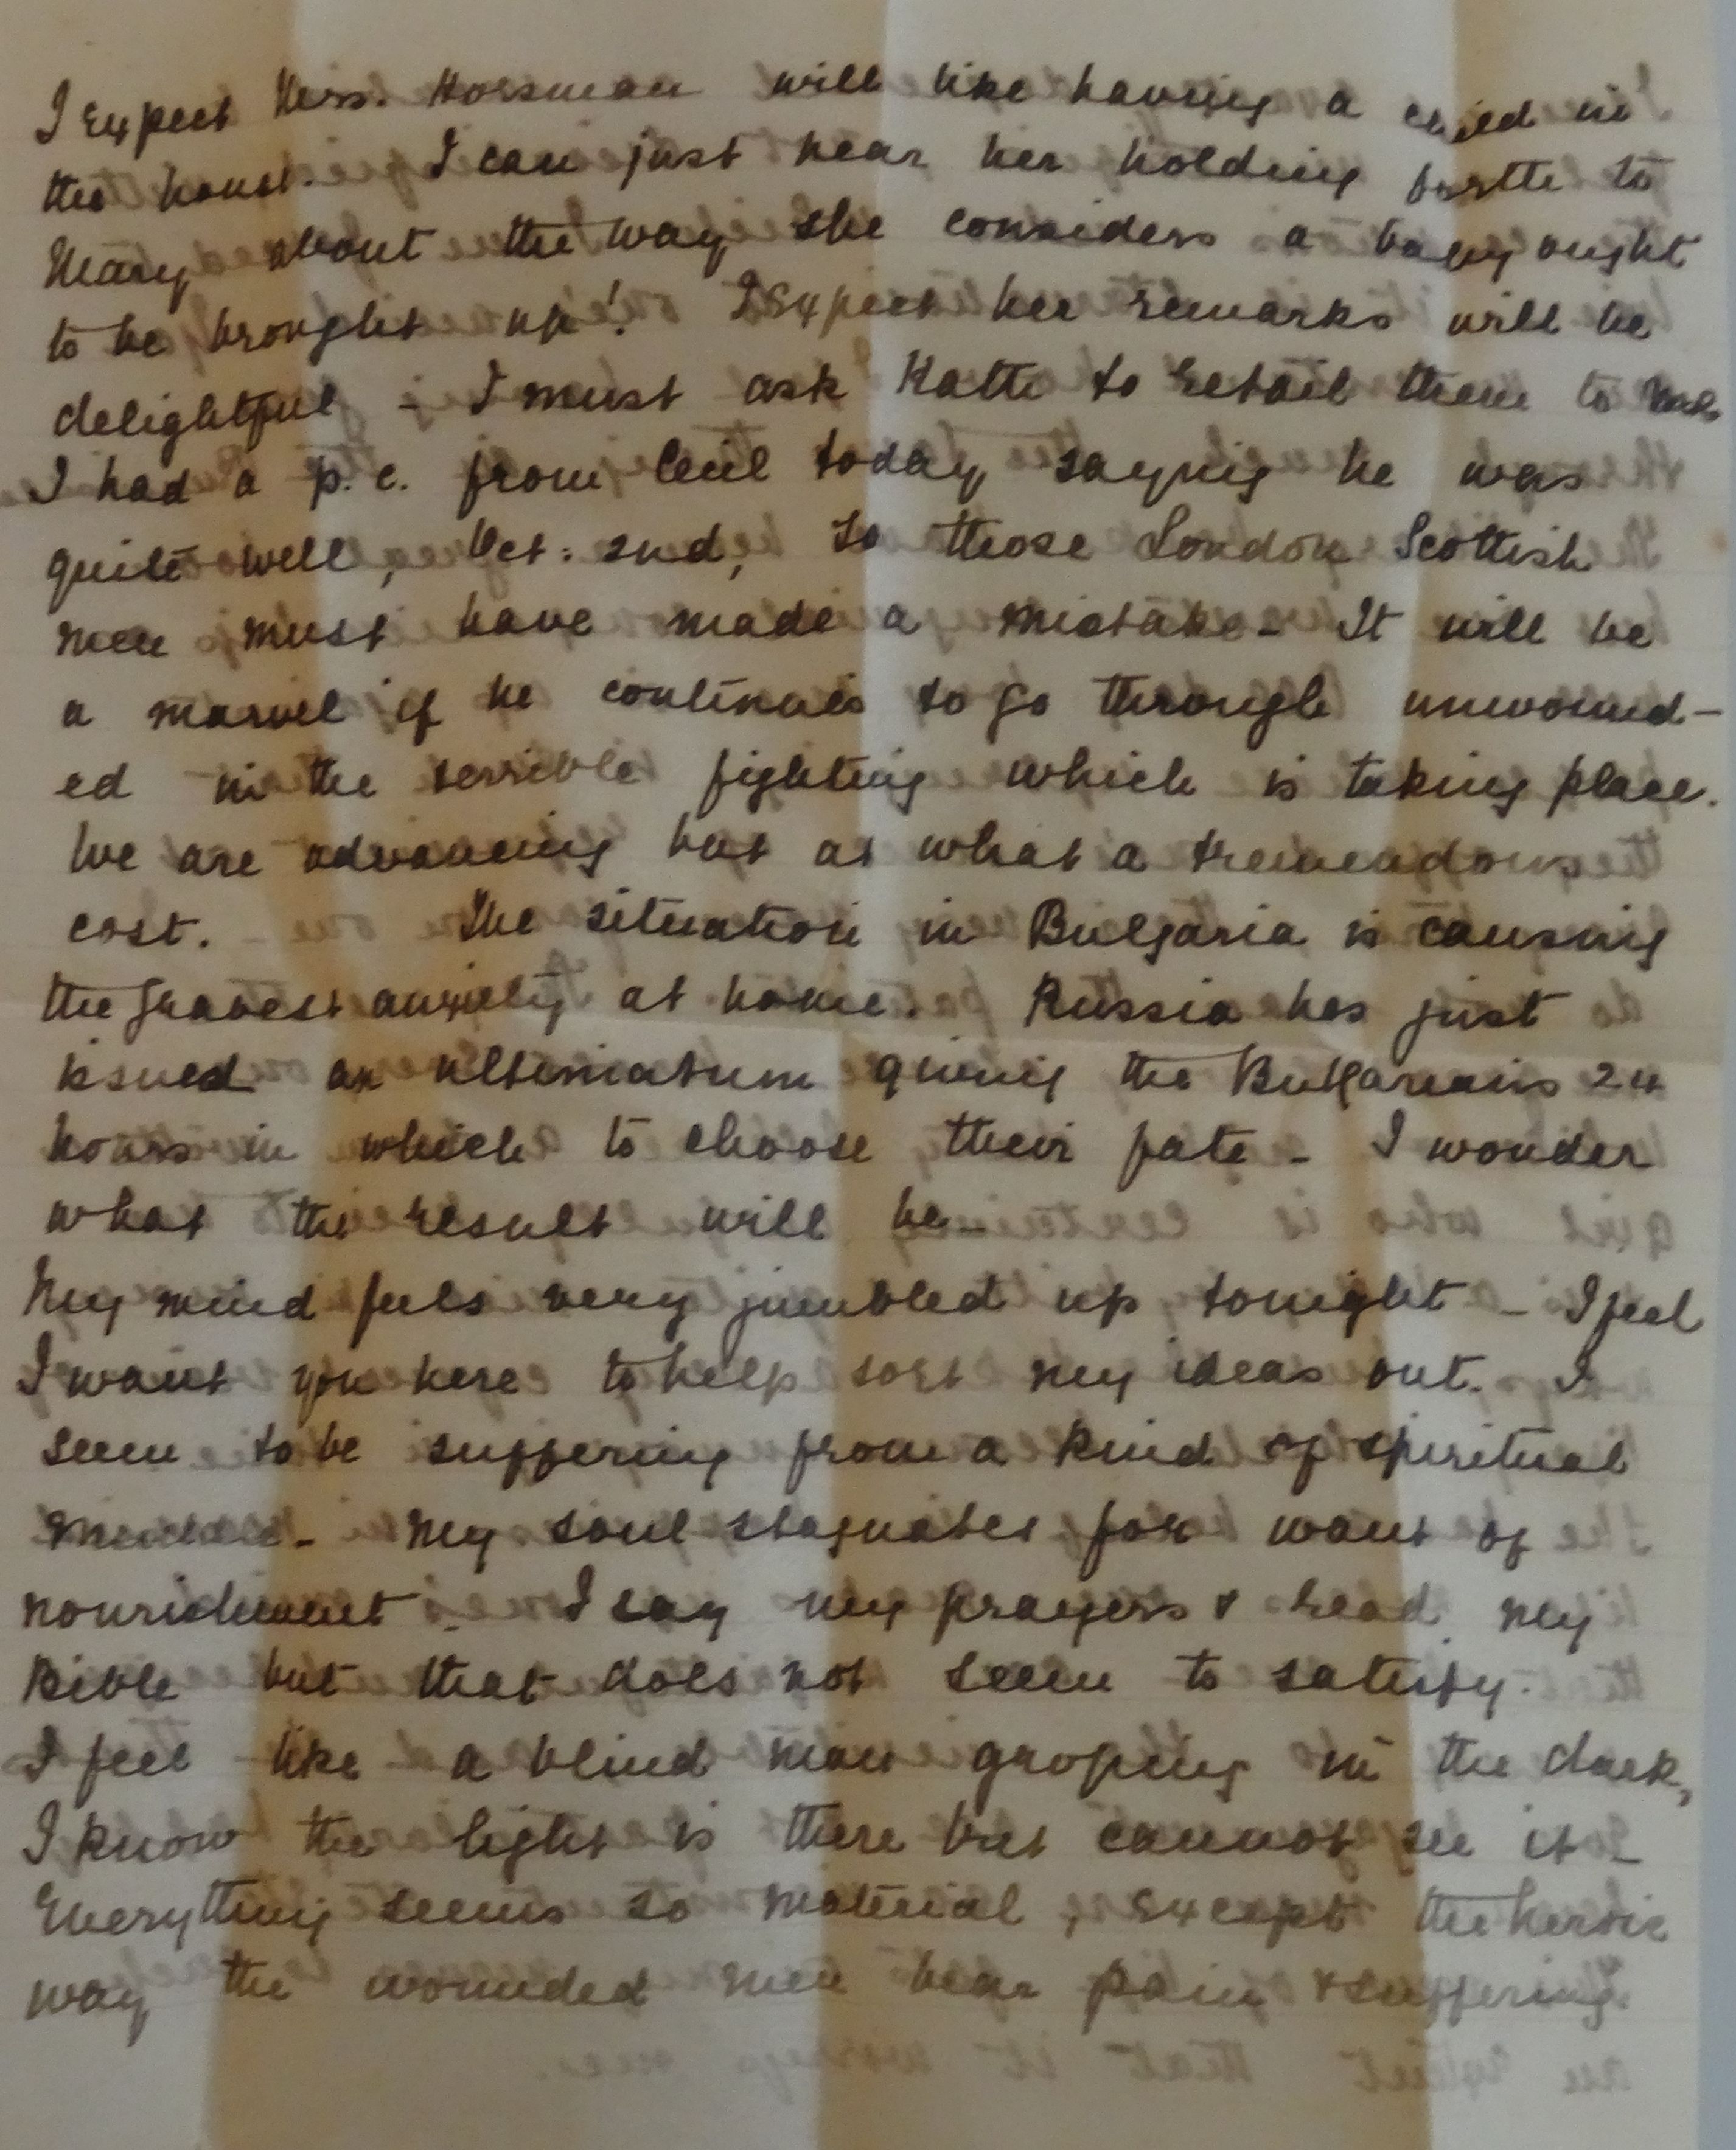 I expect Mrs. Horsman will like having a child in
the house. I can just hear her holding forth to
Mary about the way she considers a baby ought
to be brought up! I expect her remarks will be
delightful - I must ask Katie to retail them to me
I had a p.c. from Cecil today saying he was
quite well, Oct: 2nd, so those London Scottish
men must have made a mistake - It will be
a marvel if he continues to go through unwound-
ed in the terrible fighting which is taking place.
We are advancing but at what a tremendous
cost. The situation in Bulgaria is causing
the gravest anxiety at home. Russia has just
issued an ultimatum giving the Bulgarians 24
hours in which to choose their fate - I wonder
what the result will be -
My mind feels very jumbled up tonight - I feel
I want you here to help sort my ideas out. I
seem to be suffering from a kind of spiritual
- My soul stagnates for want of
nourishment. I say my prayers & read my
Bible but that does not seem to satisfy.
I feel like a blind man groping in the dark,
I know the light is there but cannot see it -
Everything seems so material, except the heroic
way the wounded men bear pain & suffering.